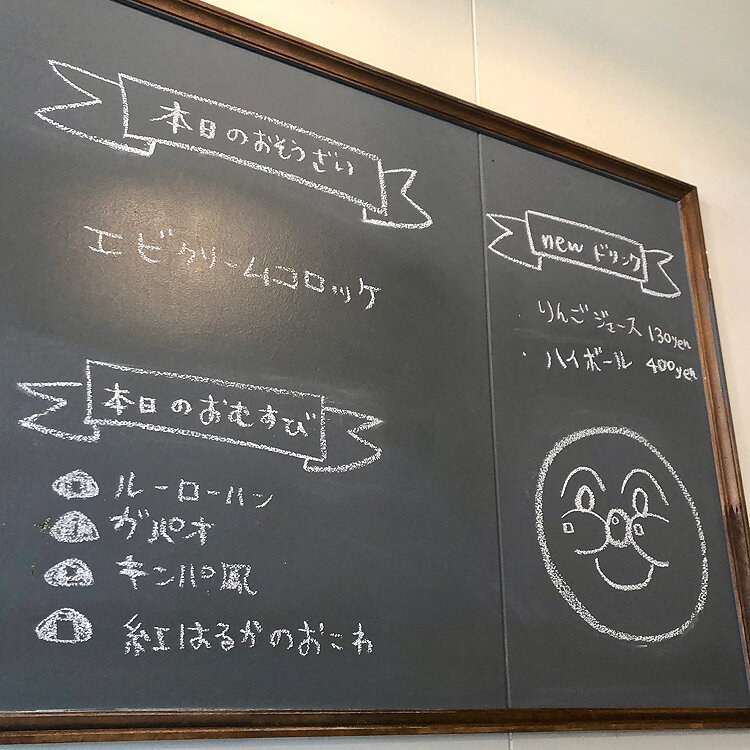 本日のおそうざい
エビクリームコロッケ
本日のおむすび
ルーローハン
ガパオ
キンパ風
紅はるかのおこわ
new ドリンク
・りんごジュース 130yen
・ハイボール 400yen